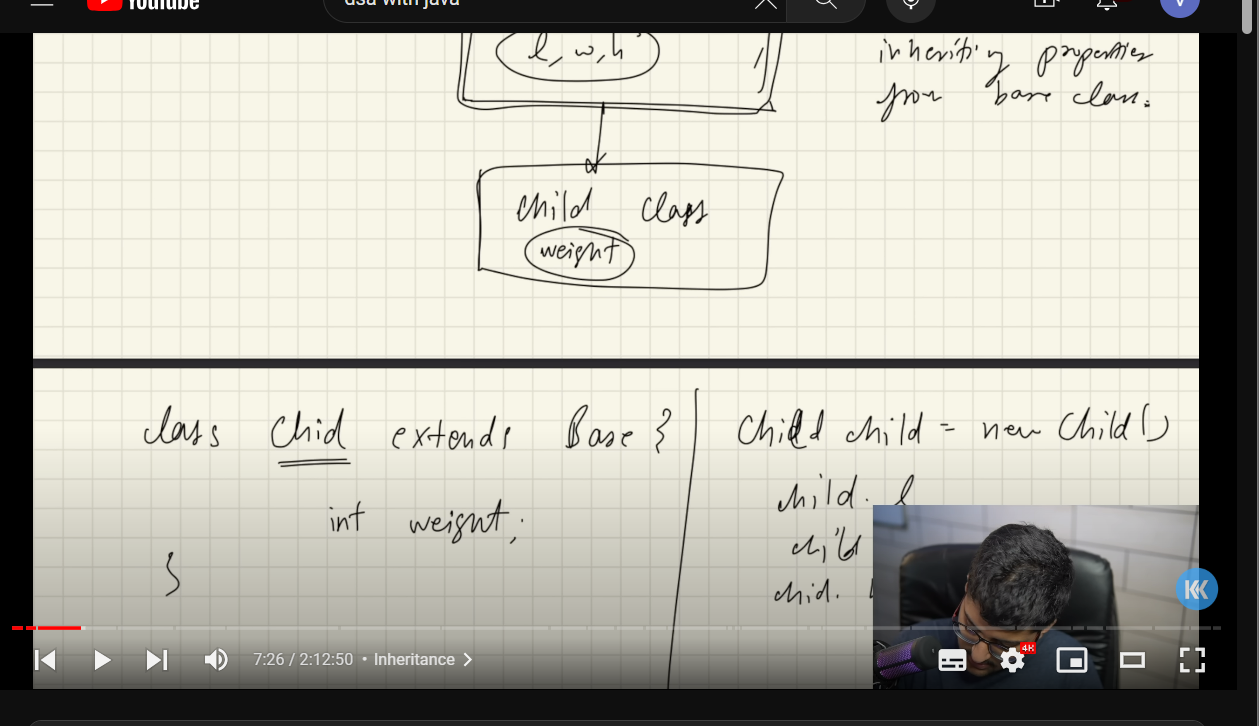 YouTube
dsa with java
V
l, w, h
inheriting properties
from base class.
child class
weight
class Chid extends Base {
int weight;
}
Child child = new Child()
child. l
child
chid.
4K
7:26 / 2:12:50 • Inheritance